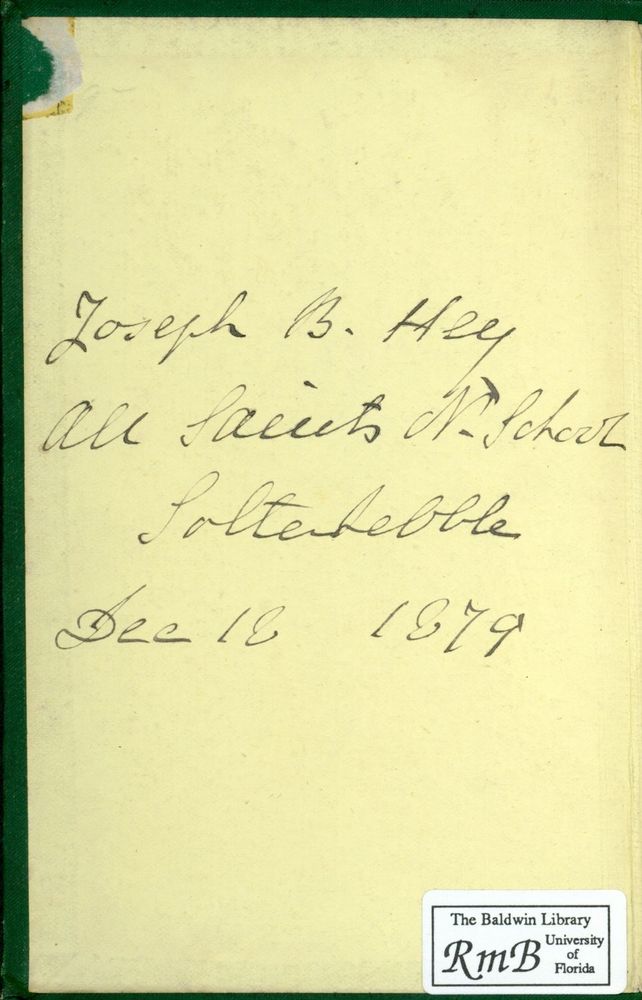 Joseph B. Hey
All Saints N. School
Salterhebble
Dec 18 1879
The Baldwin Library
RmB University
of
Florida